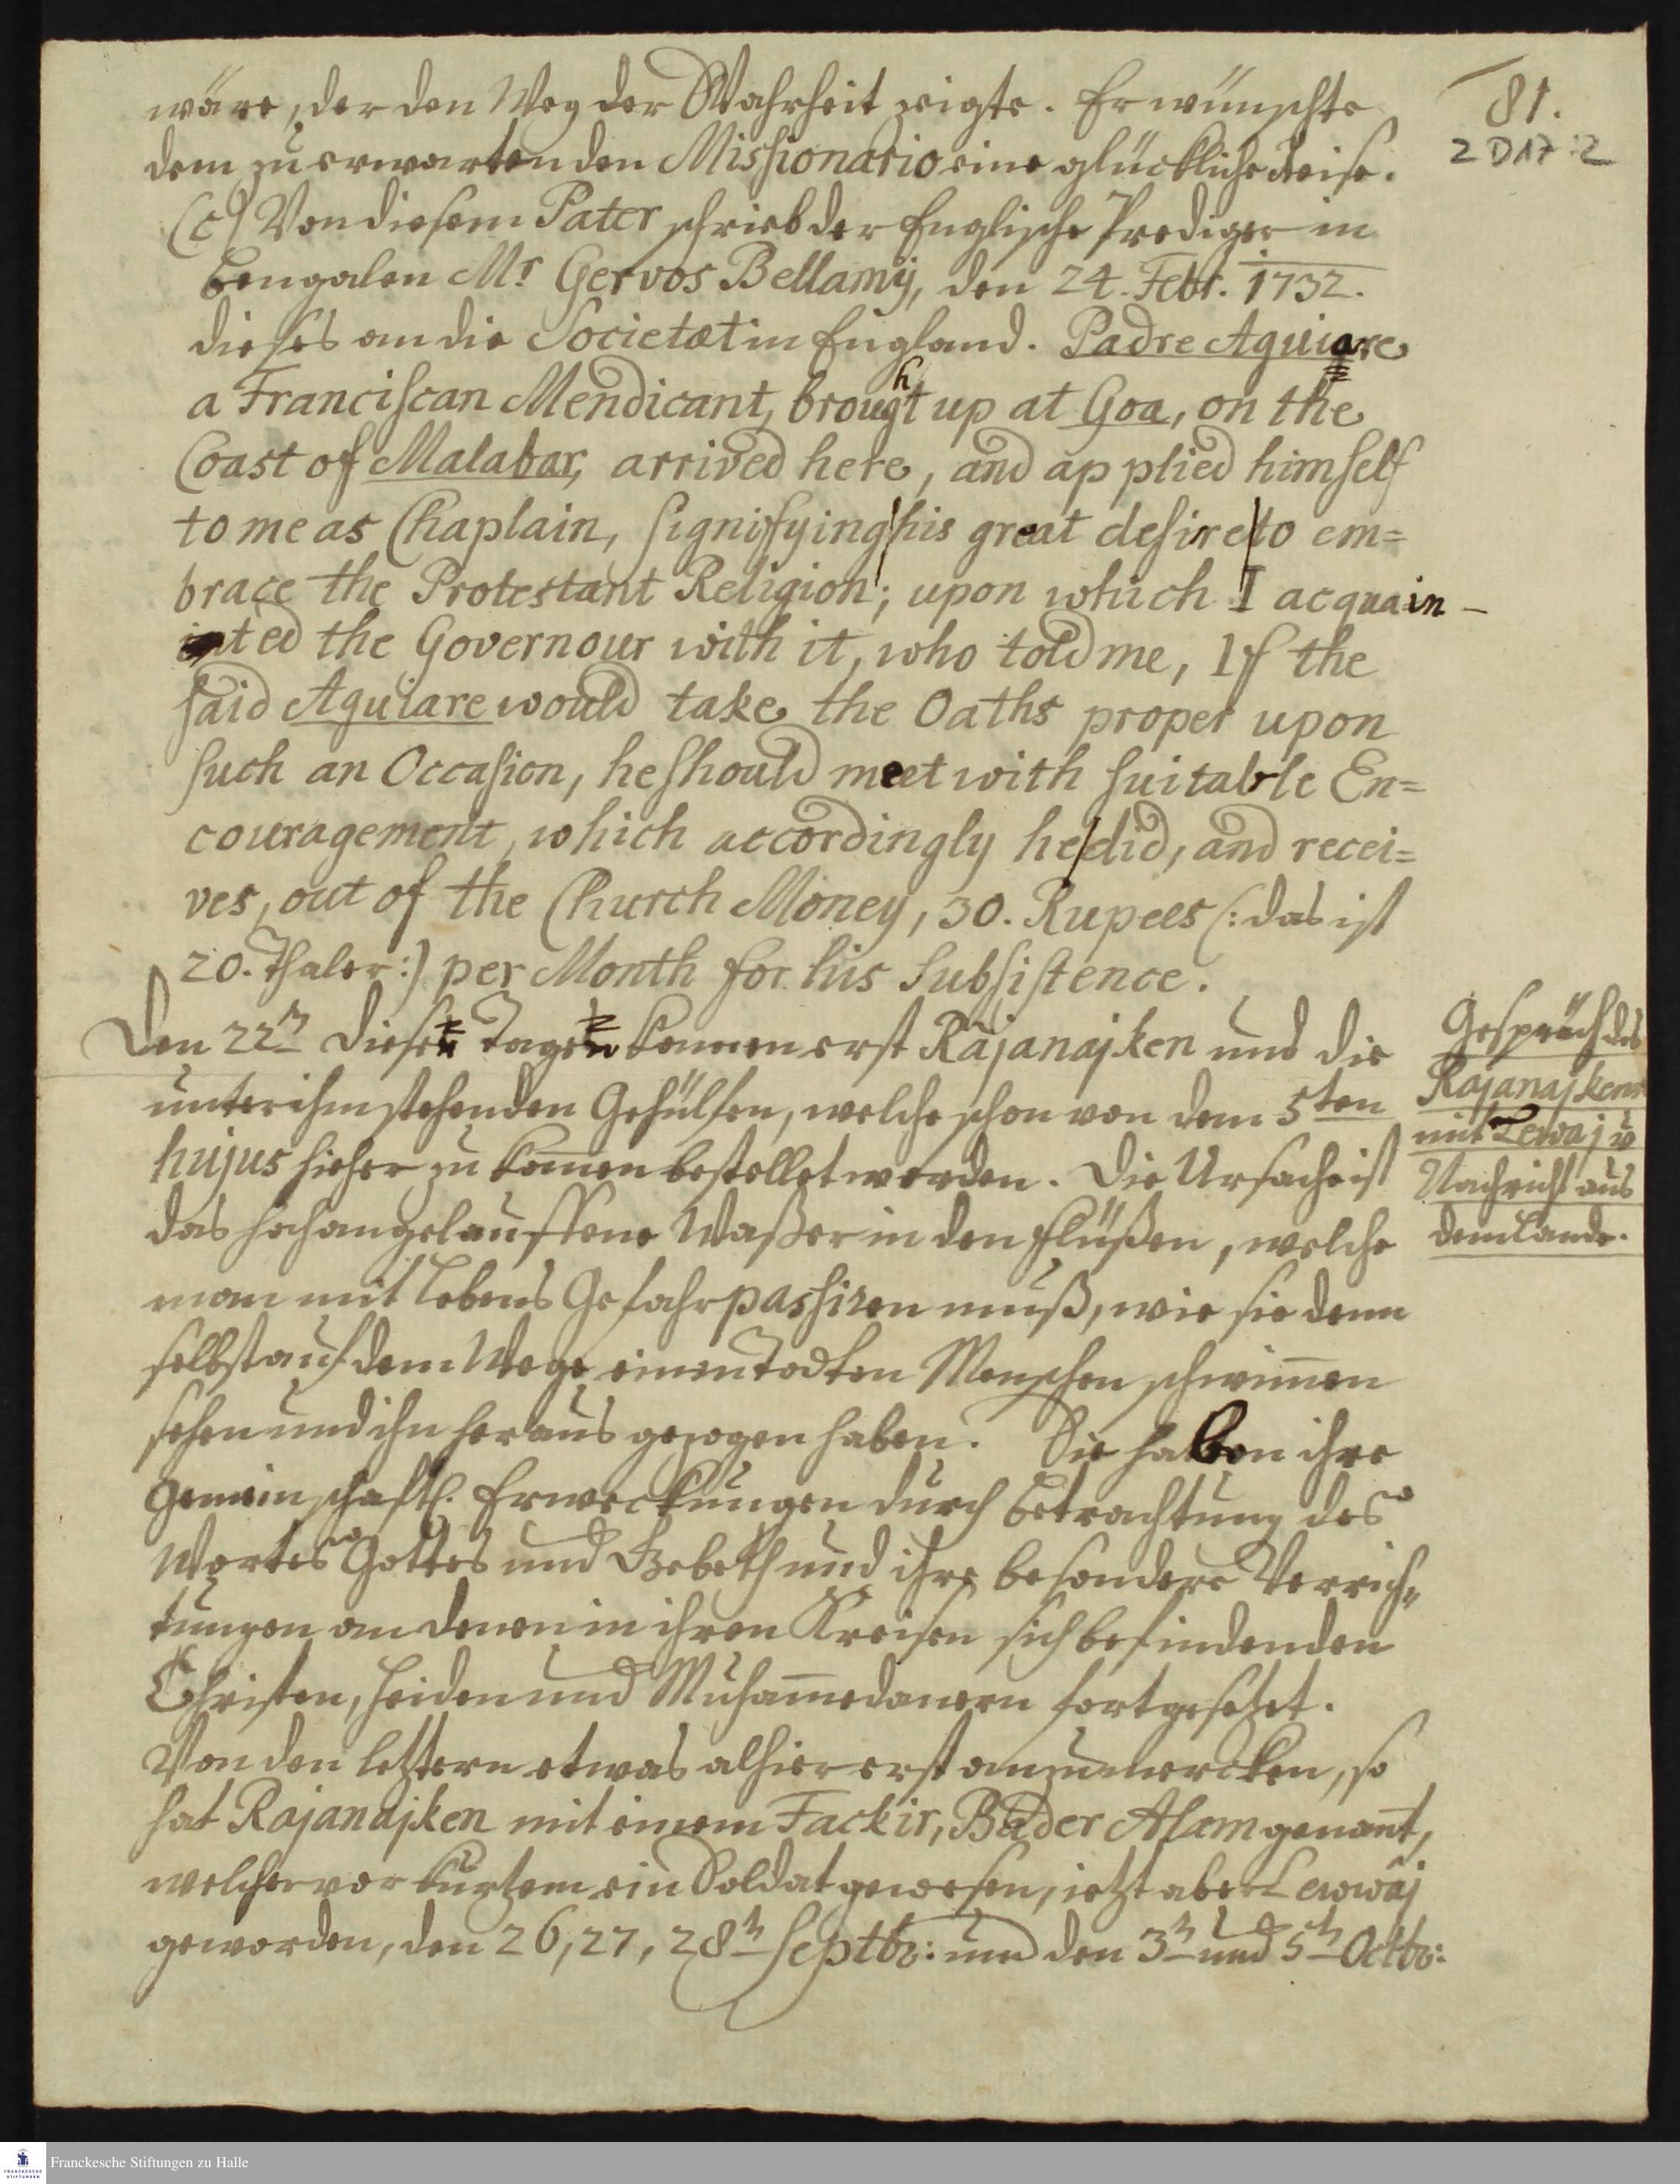 81.
2 D 17 : 2
wäre, der den Weg der Wahrheit zeigte. Er wünschte
dem zu erwartenden Missionario eine glückliche Reise.
(c) Von diesem Pater schrieb der Englische Prediger in
Bengalen Mr Gervos Bellamÿ, den 24. Febr. 1732.
dieses an die Societæt in England. Padre Aguiare
a Franciscan Mendicant, brought up at Goa, on the
Coast of Malabar, arrived here, and applied himself
to me as Chaplain, signifying his great desire to em=
brace the Protestant Religion; upon which I acquain-
ted the Governour with it, who told me, If the
said Aguiare would take the Oaths proper upon
such an Occasion, he should meet with suitable En=
couragement, which accordingly he did, and recei=
ves, out of the Church Money, 30. Rupees (: das ist
20. Thaler :) per Month for his Subsistence.
Den 22n dieses Tages kamen erst Rājanajken und die
unter ihm stehenden Gehülfen, welche schon von dem 5ten
hujus hieher zu kom̄en bestellet worden. Die Ursache ist
das hochangelauffene Waßer in den Flüßen, welche
man mit Lebens Gefahr passiren muß, wie sie denn
selbst auf dem Wege einen todten Menschen schwim̄en
sehen und ihn heraus gezogen haben. Sie haben ihre
gemeinschaftl. Erweckungen durch Betrachtung des
Wortes Gottes und Gebeth und ihre besondere Verrich=
tungen an denen in ihren Kreisen sich befindenden
Christen, Heiden und Muham̄edanern fortgesetzet.
Von den letztern etwas alhier erst anzumercken, so
hat Rajanajken mit einem Fackir, Bader Alam genan̄t,
welcher vor kurtzem ein Soldat gewesen, jetzt aber Lewwāj
geworden, den 26, 27, 28n Septbr: und den 3n und 5n Octbr:
Gespräch des
Rajanajkens
mit Lewaj u
Nachricht aus
dem Lande.
Franckesche Stiftungen zu Halle